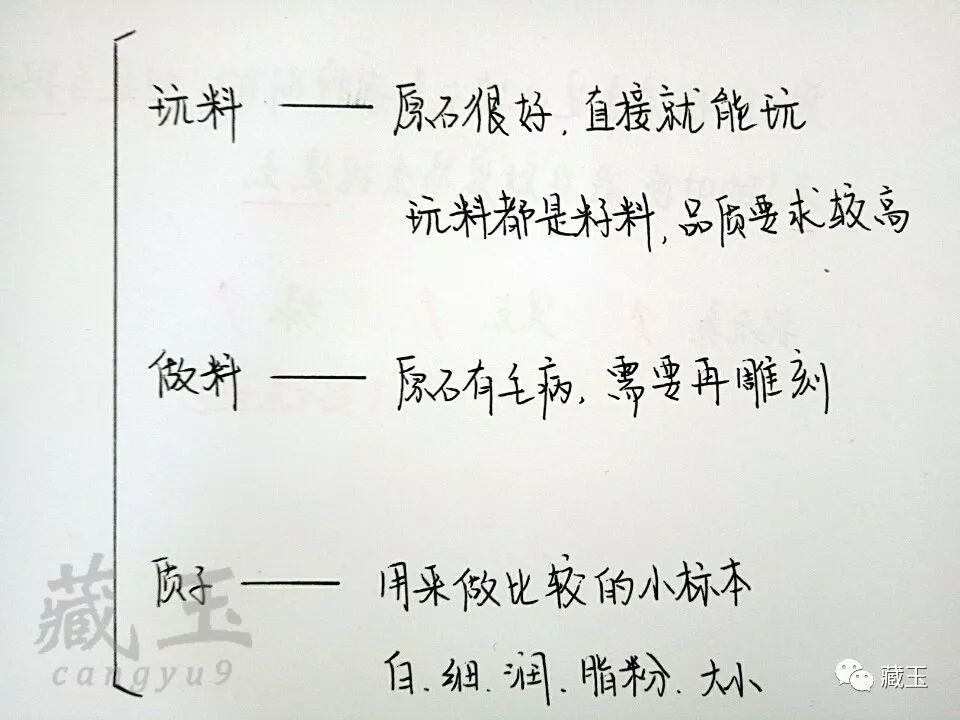 玩料 —— 原石很好，直接就能玩
玩料都是籽料，品质要求较高
做料 —— 原石有毛病，需要再雕刻
质子 —— 用来做比较的小标本
白、细、润、脂粉、大小
藏玉
cangyu9
藏玉